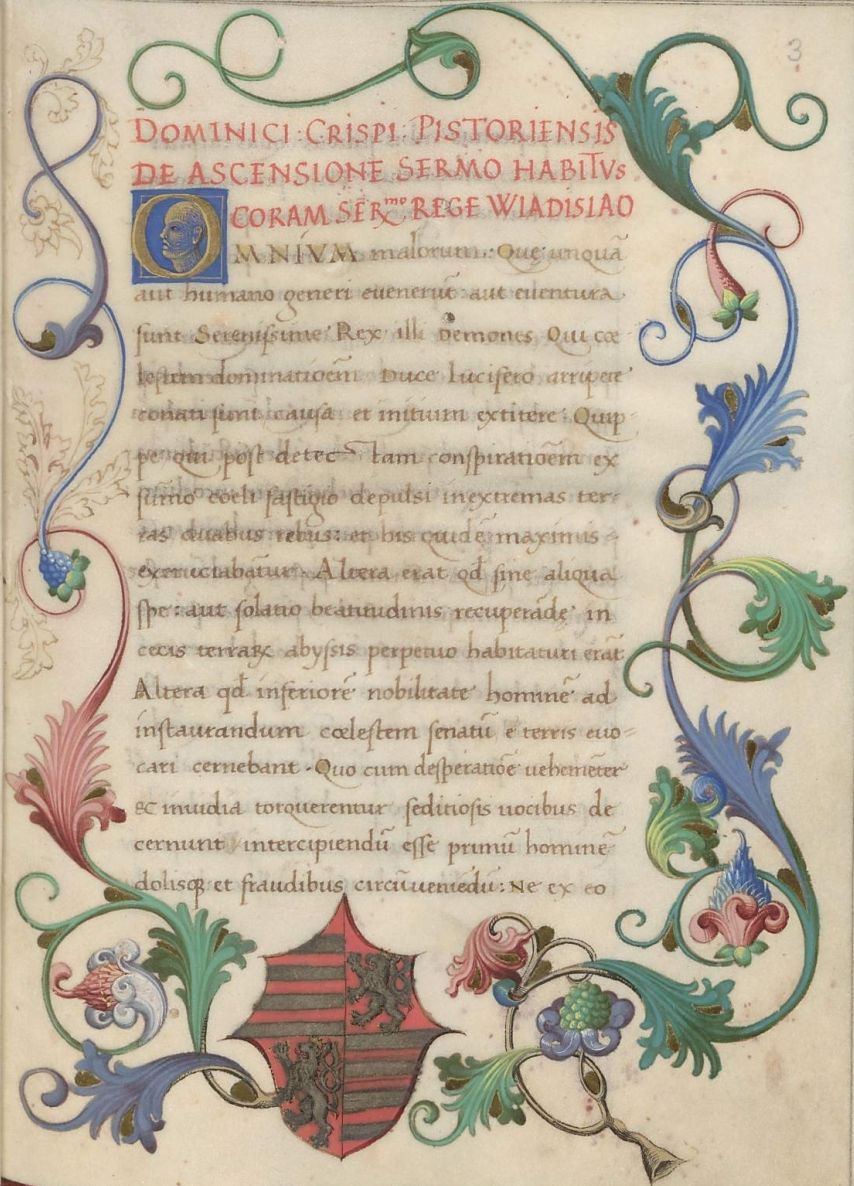 3
DOMINICI · CRISPI · PISTORIENSIS
DE ASCENSIONE SERMO HABITVs
CORAM SER̄.mo. REGE WIADISIAO
OMNIVM malorum. Que unquā
aut humano generi euenerūt: aut euentura
sunt Serenissime Rex illi Demones Qui cœ
lestem dominatioēm Duce Lucifero arripere
conati sunt causa et initium extitere: Quip-
pe qui post detectam conspiratioēm ex
sūmo coeli fastigio depulsi in extremas ter-
ras duabus rebus: et his quidē maximis
excruciabātur. Altera erat qđ sine aliqua
spe: aut solatio beatitudinis recuperāde in
cecis terraꝝ abyssis perpetuo habitaturi erāt
Altera qđ inferiorē nobilitate hominē ad
instaurandum cœlestem senatū e terris euo-
cari cernebant. Quo cum desperatiōe uehemēter
ac inuidia torquerentur seditiosis uocibus de
cernunt intercipiendū esse primū hominē
dolisqꝫ et fraudibus circūueniēdū: Ne ex eo